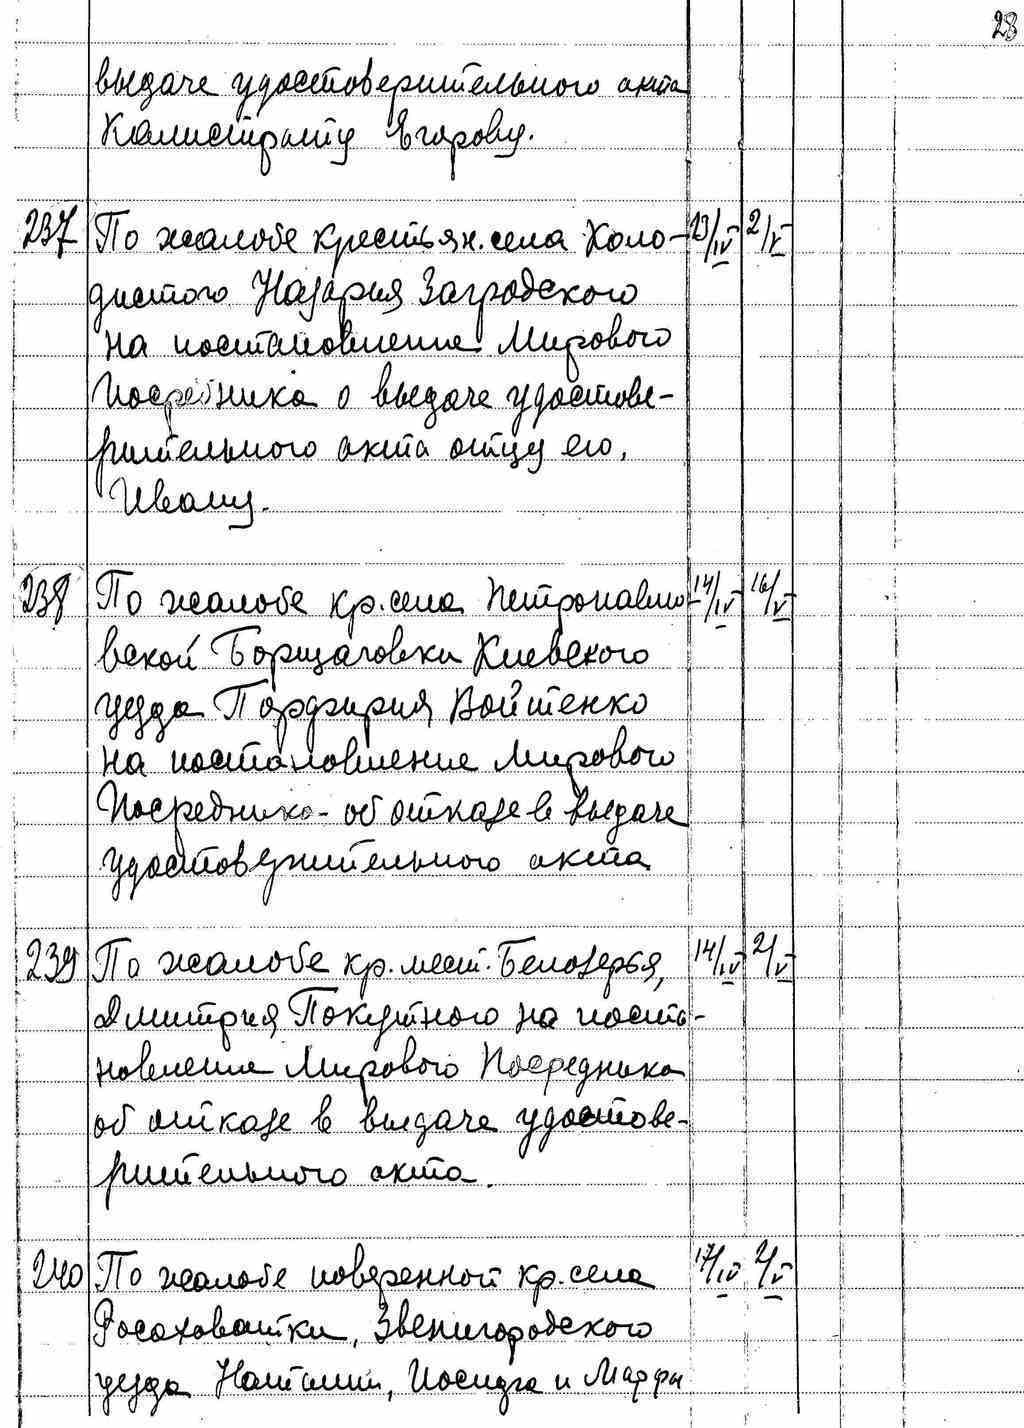 28
выдаче удостоверительного акта
Калистрату Егорову.
237 По жалобе крестьян. села Коло- 23/IV 2/V
дистого Назария Загродского
на постановление Мирового
Посредника о выдаче удостове-
рительного акта отцу его,
Ивану.
238 По жалобе кр. села Петропавло- 14/IV 16/V
вской Борщаговки Киевского
уезда Порфирия Войтенко
на постановление Мирового
Посредника - об отказе в выдаче
удостоверительного акта
239 По жалобе кр. мест. Белозерья, 14/IV 2/V
Дмитрия Покутного на поста-
новление Мирового Посредника
об отказе в выдаче удостове-
рительного акта.
240 По жалобе поверенной кр. села 17/IV 2/V
Росоховатки, Звенигородского
уезда Наталии, Иосифа и Марфы